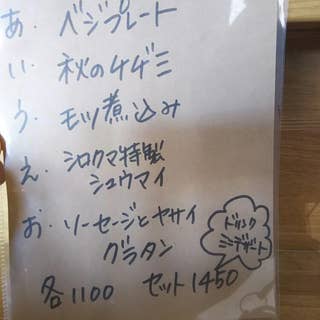 あ. ベジプレート
い. 秋のチヂミ
う. モツ煮込み
え. シロクマ特製
シュウマイ
お. ソーセージとヤサイ
グラタン
ドリンク
ミニデザート
各1100 セット1450